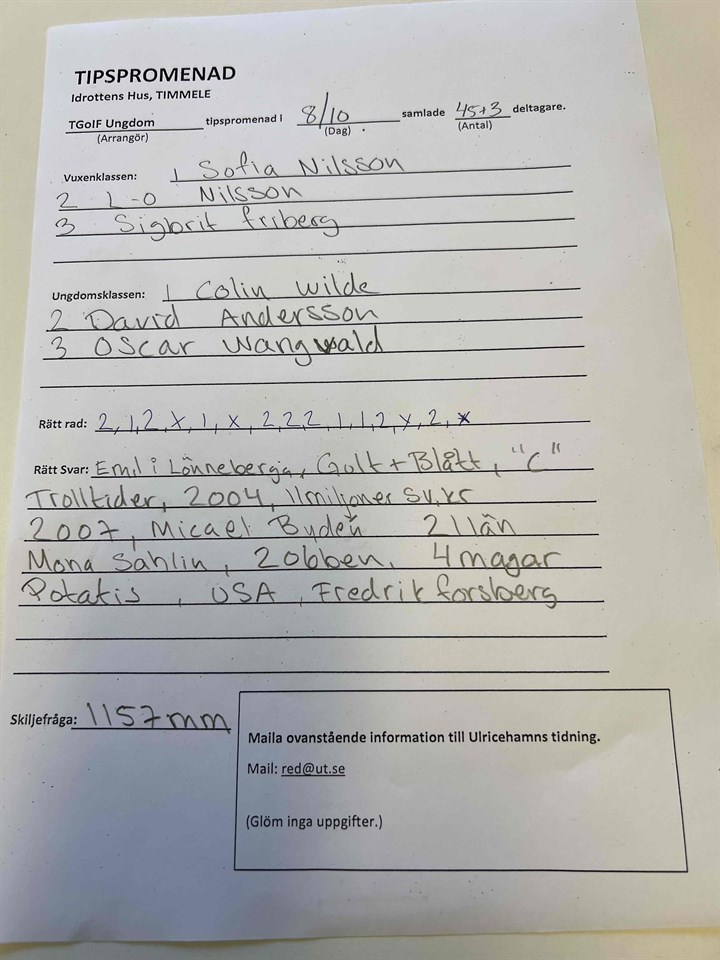 TIPSPROMENAD
Idrottens Hus, TIMMELE
TGoIF Ungdom tipspromenad i 8/10 samlade 45+3 deltagare.
(Arrangör) (Dag) (Antal)
Vuxenklassen: 1 Sofia Nilsson
2 L-O Nilsson
3 Sigbrit friberg
Ungdomsklassen: 1 Colin Wilde
2 David Andersson
3 Oscar Wangwald
Rätt rad: 2, 1, 2, X, 1, X, 2, 2, 2, 1, 1, 2, X, 2, X
Rätt Svar: Emil i Lönneberga, Gult + Blått, "C"
Trolltider, 2004, 11miljoner sv.kr
2007, Micael Bydén 21län
Mona Sahlin, 206ben, 4magar
Potatis, USA, Fredrik forsberg
Skiljefråga: 1157mm
Maila ovanstående information till Ulricehamns tidning.
Mail: red@ut.se
(Glöm inga uppgifter.)